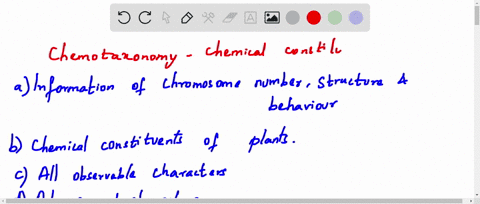 Chemotaxonomy - Chemical constitu
a) Information of chromosome number, structure &
behaviour
b) Chemical constituents of plants.
c) All observable characters